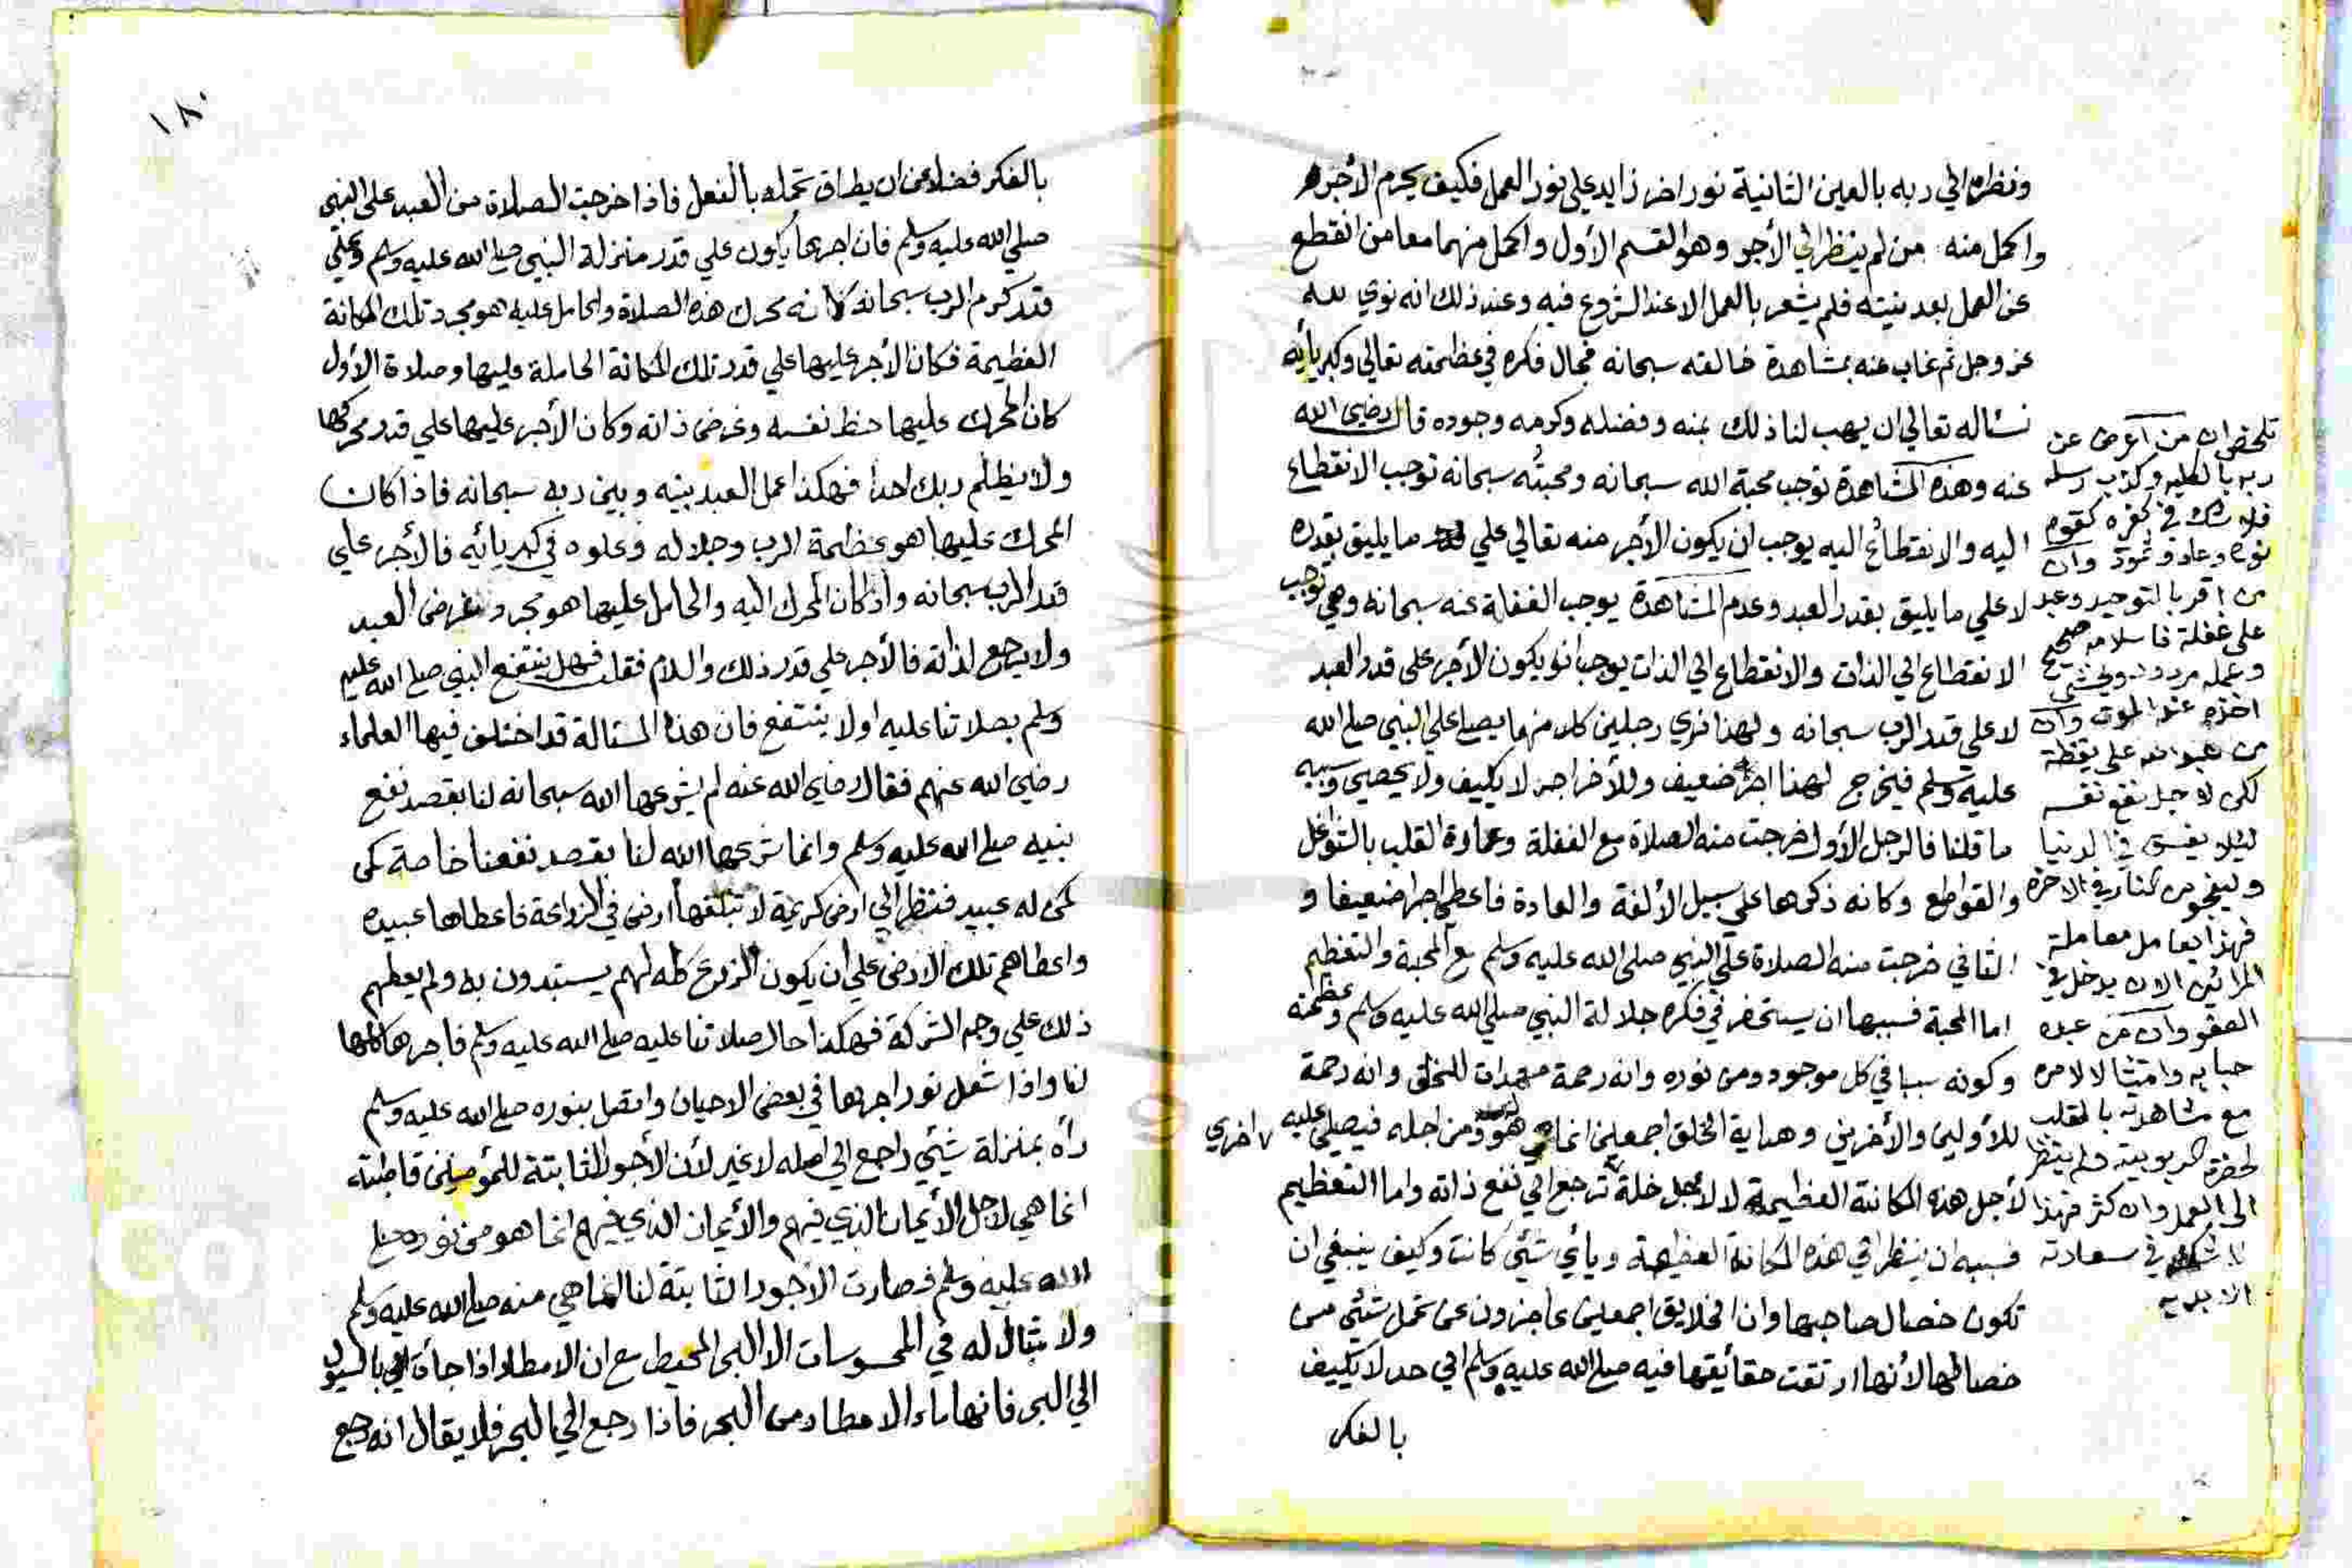 ونظره الي ربه بالعين الثانية نور اخر زايد علي نور العمل فكيف يحرم الأجر
واكمل منه من لم ينظر الي الأجر وهو القسم الأول واكمل منهما معا من انقطع
عن العمل بعد نيته فلم يشعر بالعمل الا عند الشروع فيه وعند ذلك انه نوي لله
عز وجل ثم غاب عنه بمشاهدة خالقه سبحانه فجال فكره في عظمته تعالي وكبريائه
نسٔاله تعالي ان يهب لنا ذلك بمنه وفضله وكرمه وجوده قال رضي الله
عنه وهذه المشاهدة توجب محبة الله سبحانه ومحبتُه سبحانه توجب الانقطاع
اليه والانقطاعُ اليه يوجب ان يكون الأجر منه تعالي علي ما يليق بقدره
لا علي ما يليق بقدر العبد وعدم المشاهدة يوجب الغفلة عنه سبحانه وهي توجب
الانقطاع الي الذات والانقطاع الي الذات يوجب ان يكون الأجر علي قدر العبد
لا علي قدر الرب سبحانه ولهذا نري رجلين كلا منهما يصلي علي النبي صلي الله
عليه وسلم فيخرج لهذا اجر ضعيف وللأخر اجر لا يكيف ولا يحصي وسببه
ما قلنا فالرجل الأول خرجت منه الصلاة مع الغفلة وعمارة القلب بالشواغل
والقواطع وكانه ذكرها علي سبيل الألفة والعادة فاعطي اجرا ضعيفا و
الثاني خرجت منه الصلاة علي النبي صلي الله عليه وسلم مع المحبة والتعظيم
اما المحبة فسببها ان يستحضر في فكره جلالة النبي صلي الله عليه وسلم وعظمته
وكونه سببا في كل موجود ومن نوره وانه رحمة مهدات للخلق وانه رحمة
للأولين والأخرين وهداية الخلق اجمعين انما هو ومن اجله فيصلي عليه
لأجل هذه المكانة العظيمة لا لأجل علة اخري ترجع الي نفع ذاته واما التعظيم
فسببه ان ينظر الي هذه المكانة العظيمة وبأي شئي كانت وكيف ينبغي ان
تكون خصال صاحبها وان الخلايق اجمعين عاجزون عن تحمل شئي من
خصالها لأنها ارتقت حقائقها فيه صلي الله عليه وسلم الي حد لا يكيف
بالفكر
تلخص ان من اعرض عن
ربه بالكلية وكذب رسله
فلا شك في كفره كقوم
نوح وعاد وثمود وان
من اقر بالتوحيد وعبد
علي غفلة فاسلامه صحيح
وعمله مردود ويخشي
اخذه عند الموت وان
من علي يقظة
لكن لاجل نفع نفسه
ليلا يفسق في الدنيا
ولينجو من النار في الاخرة
فهذا يعامل معاملة
المرائين الا ان يدخل في
العفو وان من عبده
حبا به وامتثالا لامره
مع مشاهدته بالقلب
لحضرة الربوبية ولم ينظر
الي العمل وان كثر فهذا
لا شك في سعادته
الابدية
١٨٠
بالفكر فضلا عن ان يطاق تحمله بالفعل فاذا خرجت الصلاة من العبد علي النبي
صلي الله عليه وسلم فان اجرها يكون علي قدر منزلة النبي صلي الله عليه وسلم وعلي
قدر كرم الرب سبحانه لانه محرك هذه الصلاة والحامل عليه هو مجرد تلك المكانة
العظيمة فكان الأجر عليها علي قدر تلك المكانة الحاملة عليها وصلاة الأول
كان المحرك عليها حظ نفسه وغرض ذاته وكان الأجر عليها علي قدر محركها
ولا يظلم ربك احدا فهكذا عمل العبد بينه وبين ربه سبحانه فاذا كان
المحرك عليها هو عظمة الرب وجلاله وعلوه في كبريائه فالأجر علي
قدر الرب سبحانه واذ كان المحرك اليه والحامل عليها هو مجرد غرض العبد
ولا يرجع لذاته فالأجر علي قدر ذلك والسلام فقلت فهل ينتفع النبي صلي الله عليه
وسلم بصلاتنا عليه او لا ينتفع فان هذه المسٔالة قد اختلف فيها العلماء
رضي الله عنهم فقال رضي الله عنه لم يشرعها الله سبحانه لنا بقصد نفع
نبيه صلي الله عليه وسلم وانما شرعها الله لنا بقصد نفعنا خاصة كمن
كمن له عبيد فنظر الي ارض كريمة لا تبلغها ارض في الزراعة فاعطاها عبيده
واعطاهم تلك الارض علي ان يكون الزرع كله لهم يستبدون به ولم يعطهم
ذلك علي وجه الشركة فهكذا حال صلاتنا عليه صلي الله عليه وسلم فاجرها كلها
لنا واذا شعل نور اجرها في بعض الاحيان واتصل بنوره صلي الله عليه وسلم
رأه بمنزلة شئي راجع الي اصله لا غير لأن الأجور الثابتة للمؤمنين قاطبة
انما هي لاجل الأيمان الذي فيهم والأيمان الذي فيهم انما هو من نوره صلي
الله عليه وسلم فصارت الأجور الثابتة لنا انما هي منه صلي الله عليه وسلم
ولا مثال له في المحسوسات الا البحر المحيط مع ان الامطار اذا جأت بالسيول
الي البحر فانها ماء الامطار من البحر فاذا رجع الي البحر فلا يقال انه رجع